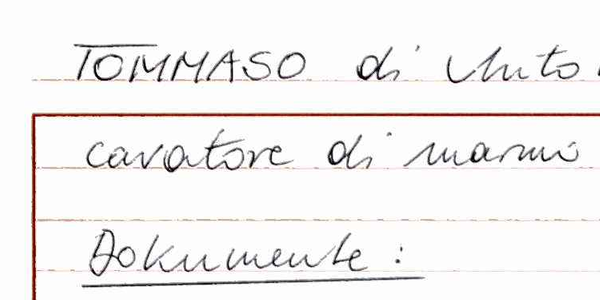 TOMMASO di
cavatore di marmo
Dokumente: